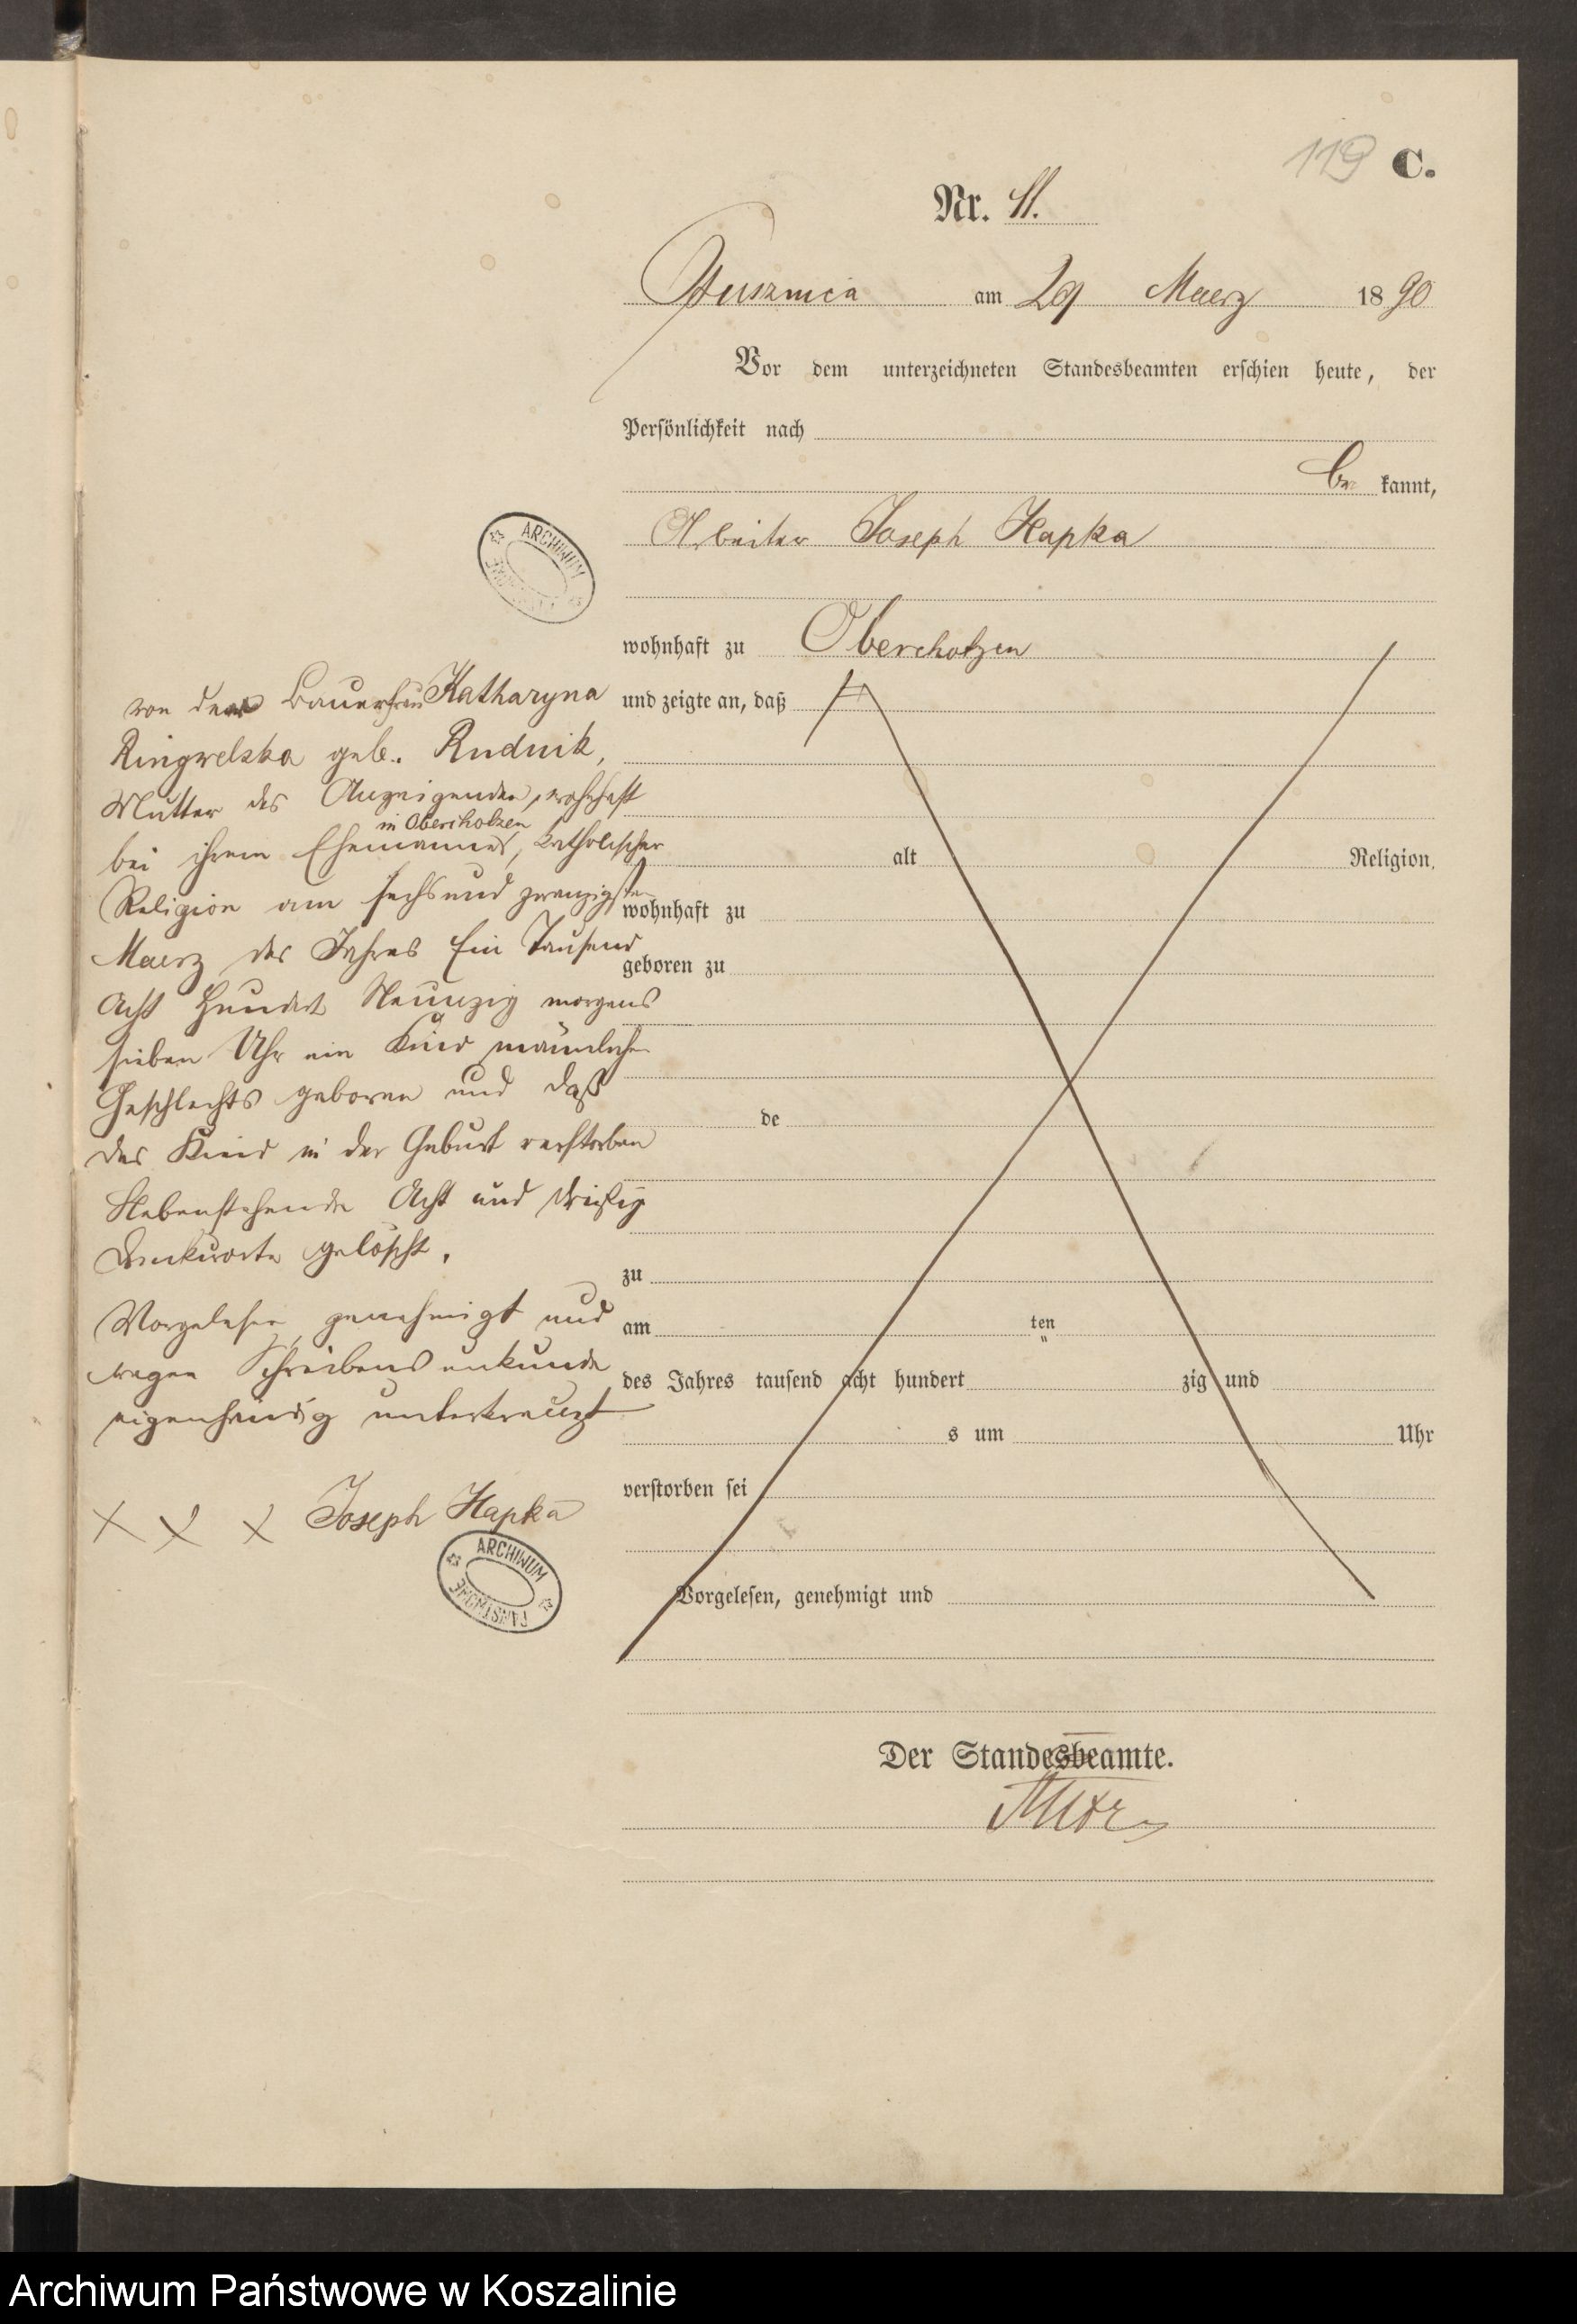 119 C.
Nr. 11.
am 29 Maerz 1890
Vor dem unterzeichneten Standesbeamten erschien heute, der
Persönlichkeit nach
be kannt,
Arbeiter Joseph Hapka
ARCHIWUM
wohnhaft zu Oberchotzen
und zeigte an, daß
alt Religion,
wohnhaft zu
geboren zu
de
zu
am ten
"
des Jahres tausend acht hundert zig und
s um Uhr
verstorben sei
Vorgelesen, genehmigt und
Der Standesbeamte.
von der Bauerfrau Katharyna
Ringwelska geb. Rudnik,
Mutter des Anzeigenden, wohnhaft
in Oberchotzen
bei ihrem Ehemanne, katholischer
Religion am sechsund zwanzigsten
Maerz des Jahres Ein Tausend
Acht Hundert Neunzig morgens
sieben Uhr ein Kind männlichen
Geschlechts geboren und daß
das Kind in der Geburt verstorben
Nebenstehende Acht und dreißig
Druckworte gelöscht.
Vorgelesen, genehmigt und
wegen Schreibensunkunde
eigenhändig unterkreuzt
X X X Joseph Hapka
ARCHIWUM PAŃSTWOWE
Archiwum Państwowe w Koszalinie